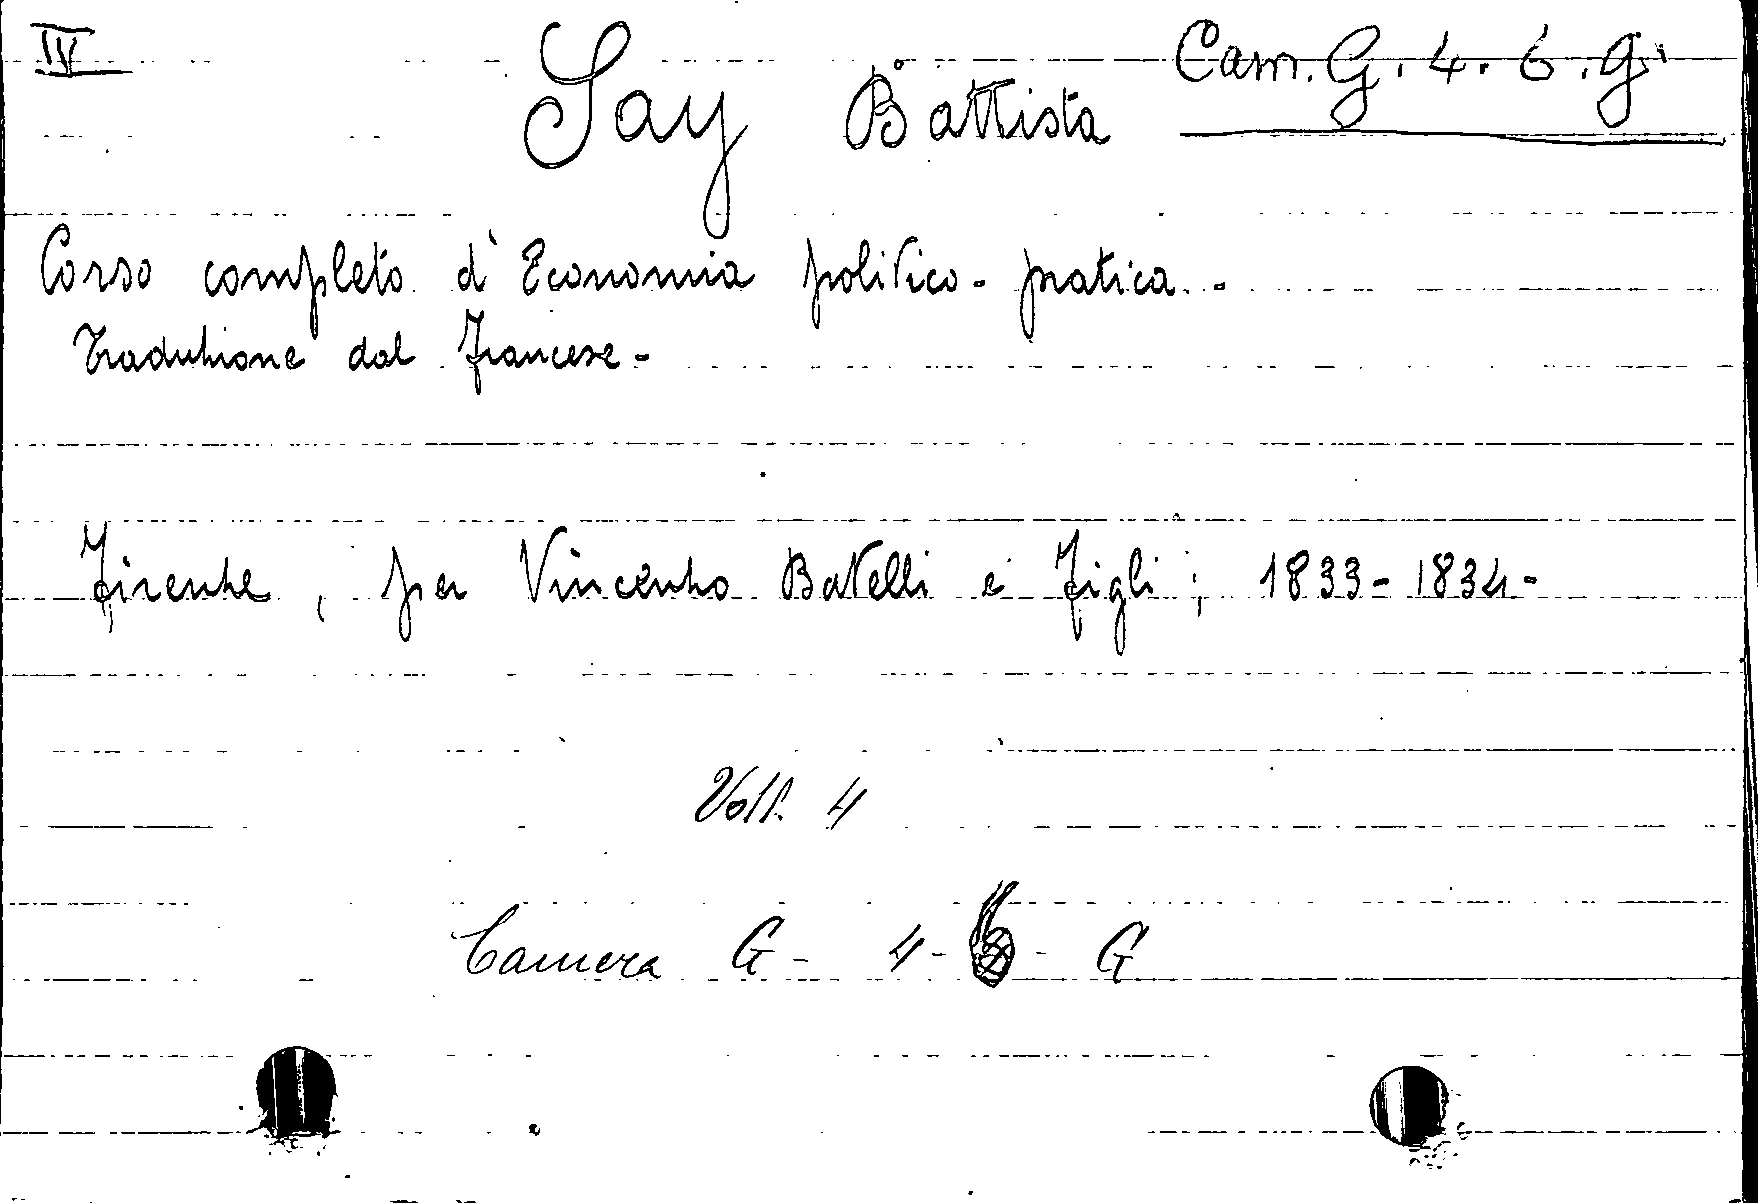 IV
Say Battista Cam. G. 4. 6. g.
Corso completo d'Economia politico-pratica.-
Traduzione dal francese-
Firenze, per Vincenzo Batelli e Figli; 1833-1834-
Voll. 4
Camera G- 4-6- G